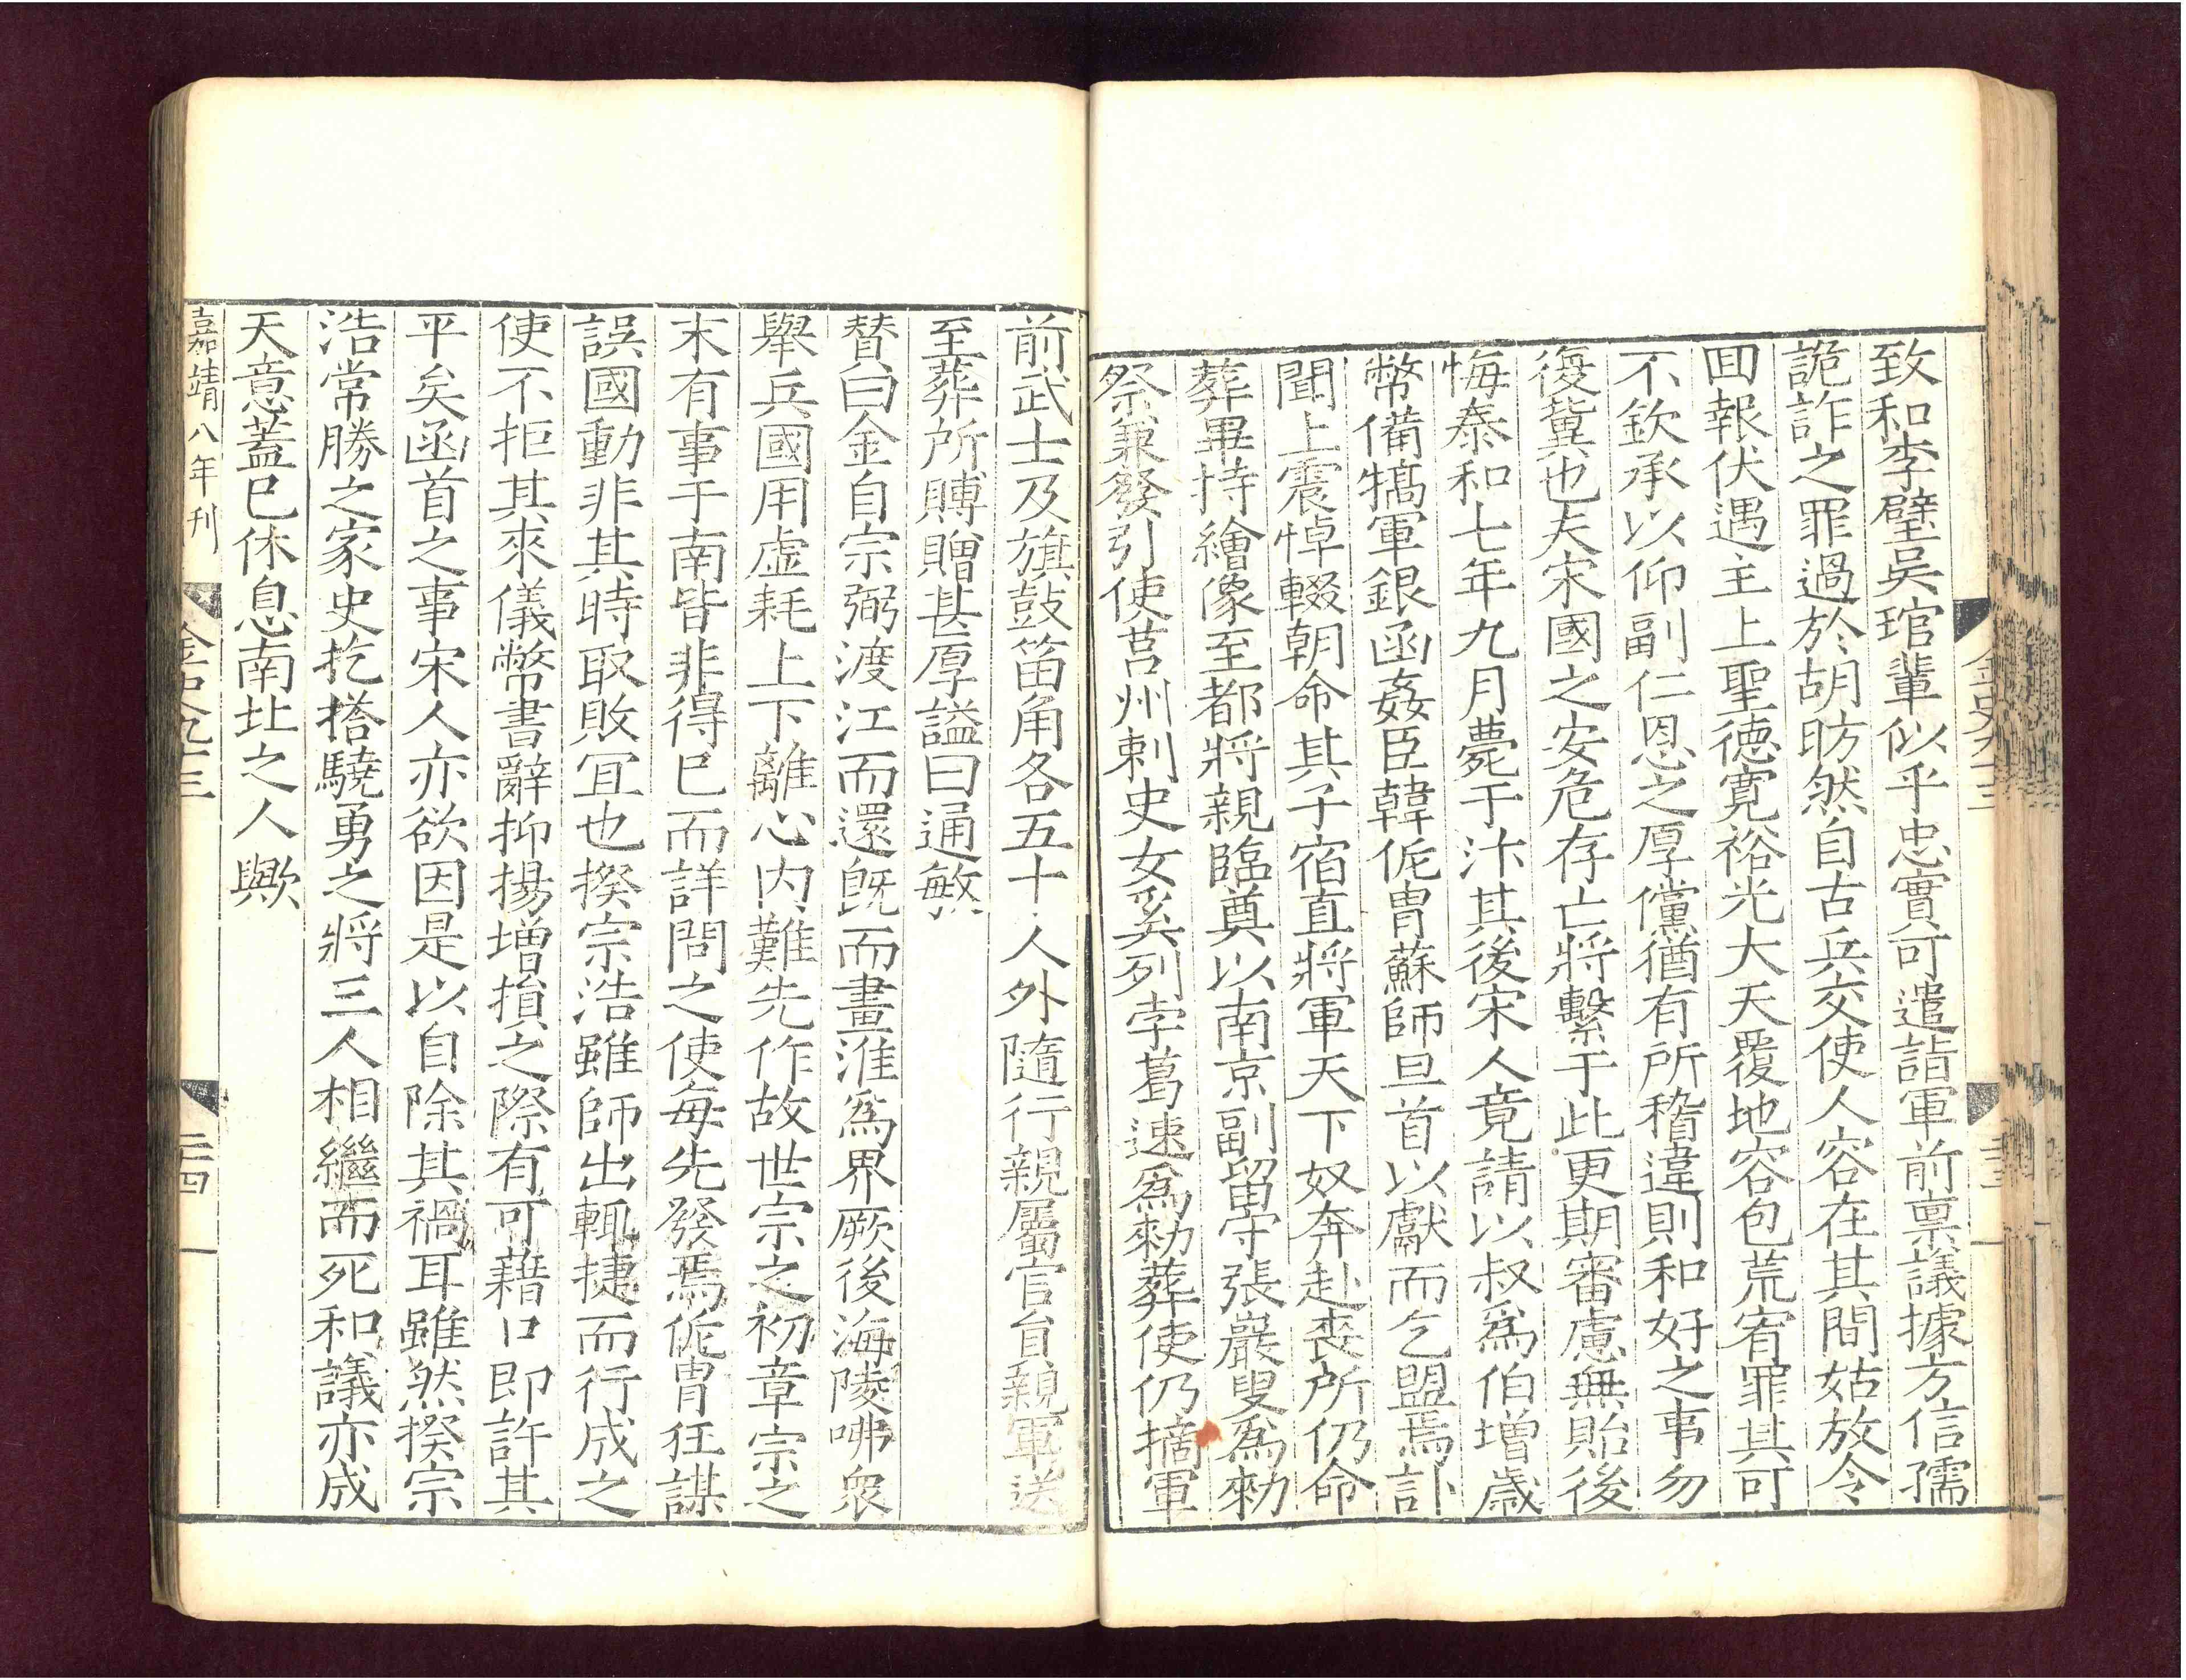 致和李壁吳琯輩似乎忠實可遣詣軍前禀議據方信孺
詭詐之罪過於胡昉然自古兵交使人容在其間姑放令
囬報伏遇主上聖徳寛裕光大天覆地容包荒宥罪其可
不欽承以仰副仁恩之厚儻猶有所稽違則和好之事勿
復冀也夫宋國之安危存亡將繫于此更期審慮無貽後
悔泰和七年九月薨于汴其後宋人竟請以叔爲伯增歳
幣備犒軍銀函姦臣韓侂冑蘇師旦首以獻而乞盟焉訃
聞上震悼輟朝命其子宿直將軍天下奴奔赴喪所仍命
葬畢持繪像至都將親臨奠以南京副留守張巖叟爲勑
祭兼發引使莒州剌史女奚列孛葛速爲勑葬使仍摘軍
前武士及旗鼓笛角各五十人外隨行親屬官員親軍送
至葬所賻贈甚厚謚曰通敏
替曰金自宗弼渡江而還旣而畫淮爲界厥後海陵咈衆
舉兵國用虚耗上下離心内難先作故世宗之初章宗之
末有事于南皆非得巳而詳問之使每先發焉侂冑狂謀
誤國動非其時取敗冝也揆宗浩雖師出輒捷而行成之
使不拒其來儀幣書辭抑揚増損之際有可藉口即許其
平矣函首之事宋人亦欲因是以自除其禍耳雖然揆宗
浩常勝之家史扢搭驍勇之將三人相繼而死和議亦成
天意蓋巳休息南北之人歟
嘉靖八年刊
金史九十三
二十四